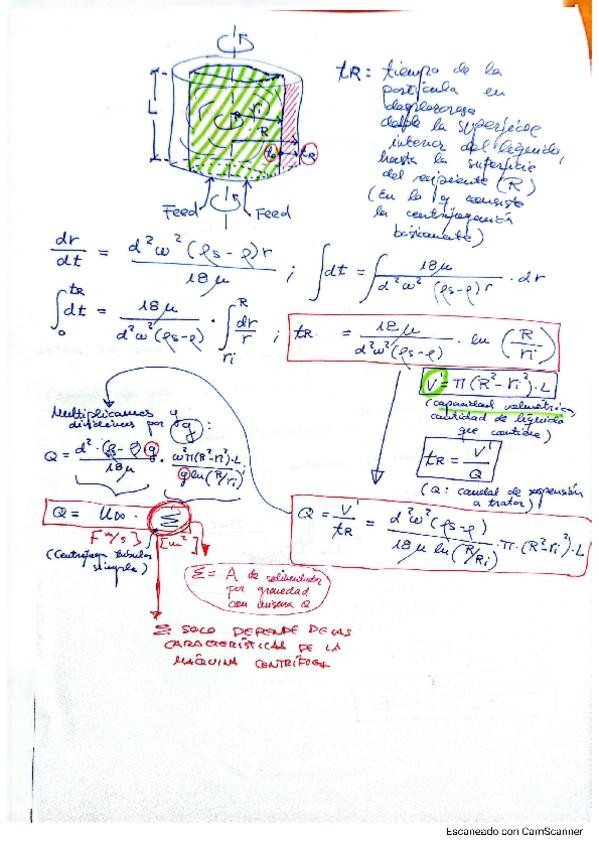 tR: tiempo de la
partícula en
desplazarse
desde la superficie
interior del líquido,
hasta la superficie
del recipiente (R)
(En lo q consiste
la centrifugación
básicamente)
L
ri
R
tR
Feed
Feed
dr/dt = d²ω²(ρs-ρ)r / 18μ ; ∫dt = ∫ 18μ / d²ω²(ρs-ρ)r · dr
∫₀^tR dt = 18μ / d²ω²(ρs-ρ) · ∫ri^R dr/r ; tR = 18μ / d²ω²(ρs-ρ) · ln (R/ri)
V' = π(R²-ri²)·L
(capacidad volumétrica,
cantidad de líquido
que contiene)
tR = V'/Q
(Q: caudal de suspensión
a tratar)
Multiplicamos y
dividimos por g:
Q = d²·(ρs-ρ)g / 18μ · ω²π(R²-ri²)·L / g ln(R/ri)
Q = V'/tR = d²ω²(ρs-ρ) / 18μ ln(R/Ri) · π·(R²-ri²)·L
Q = U∞ · Σ
[m/s] [m²]
(Centrífuga tubular
simple)
Σ = A de sedimentador
por gravedad
con misma Q
Σ SOLO DEPENDE DE LAS
CARACTERÍSTICAS DE LA
MÁQUINA CENTRÍFUGA
Escaneado con CamScanner